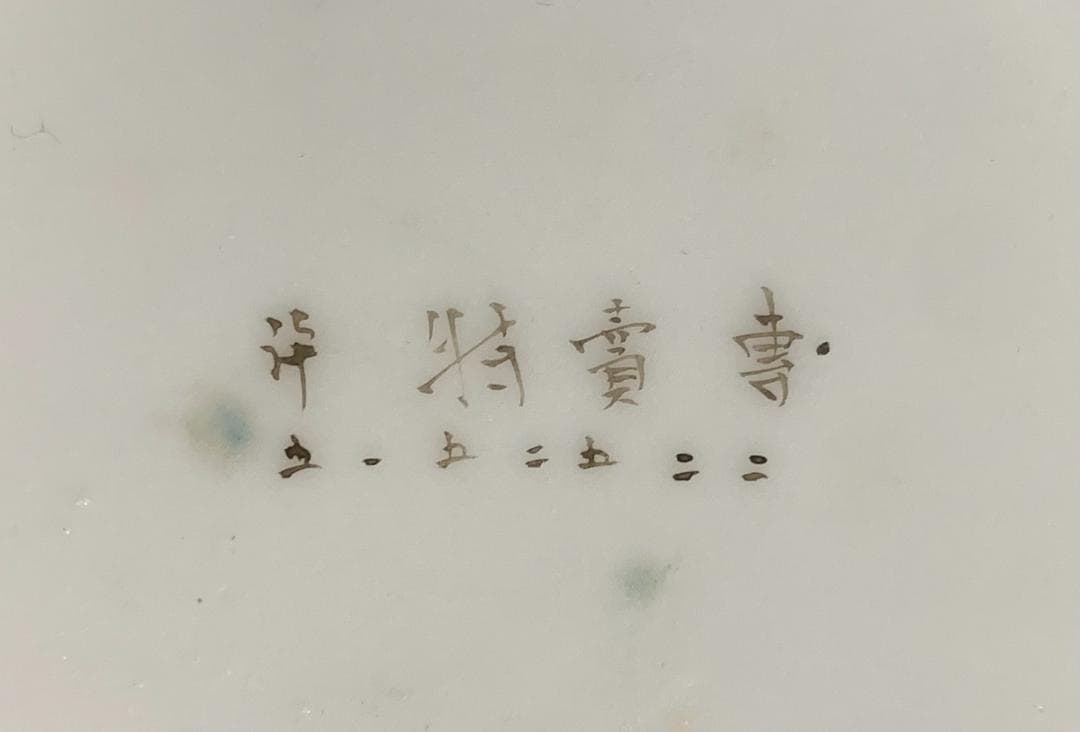 賣書
五一五二五二二